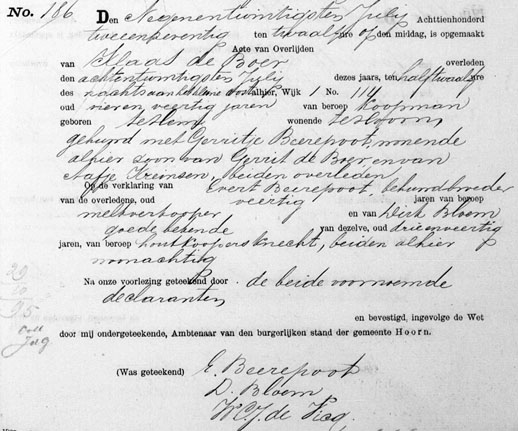 No. 186. Den Negenentwintigsten Julij Achttienhonderd
tweeenzeventig ten twaalf ure op den middag, is opgemaakt
Acte van Overlijden
van Klaas de Boer overleden
den achtentwintigsten Julij dezes jaars, ten half twaalf ure
des nachts aan het kleine oost alhier, Wijk 1 No. 114
oud vierenveertig jaren van beroep Koopman
geboren te wonende te Hoorn,
gehuwd met Gerritje Beerepoot, wonende
alhier zoon van Gerrit de Boer, en van
Aafje beiden overleden
Op de verklaring van Evert Beerepoot, behuwdbroeder
van de overledene, oud veertig jaren van beroep
melkverkooper en van Dirk Bloem
goede bekende van dezelve, oud drieenveertig
jaren, van beroep houtkoopersknecht, beiden alhier
woonachtig
Na onze voorlezing geteekend door de beide voornoemde
declaranten
en bevestigd, ingevolge de Wet
door mij ondergeteekende, Ambtenaar van den burgerlijken stand der gemeente Hoorn.
(Was geteekend) E. Beerepoot
D. Bloem
de